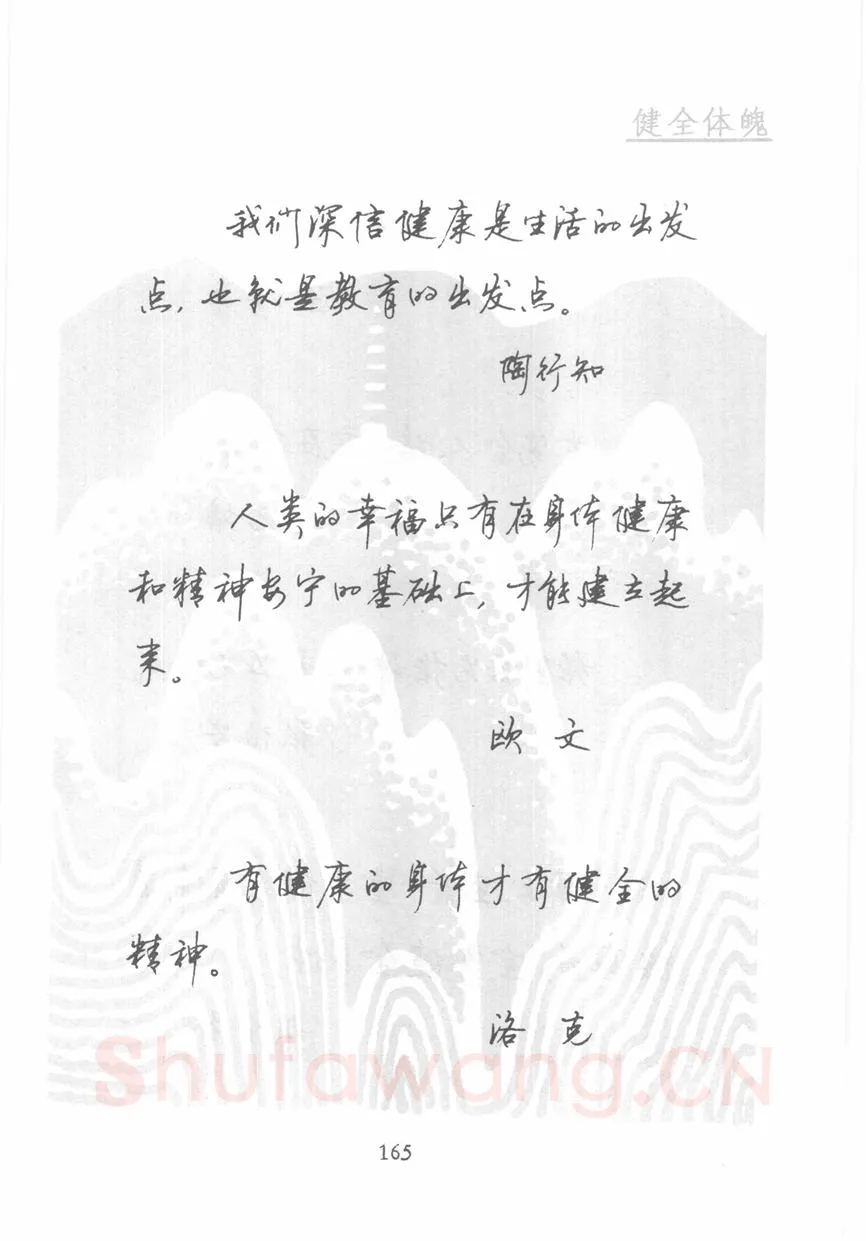 健全体魄
我们深信健康是生活的出发
点，也就是教育的出发点。
陶行知
人类的幸福只有在身体健康
和精神安宁的基础上，才能建立起
来。
欧 文
有健康的身体才有健全的
精神。
洛 克
Shufawang.CN
165